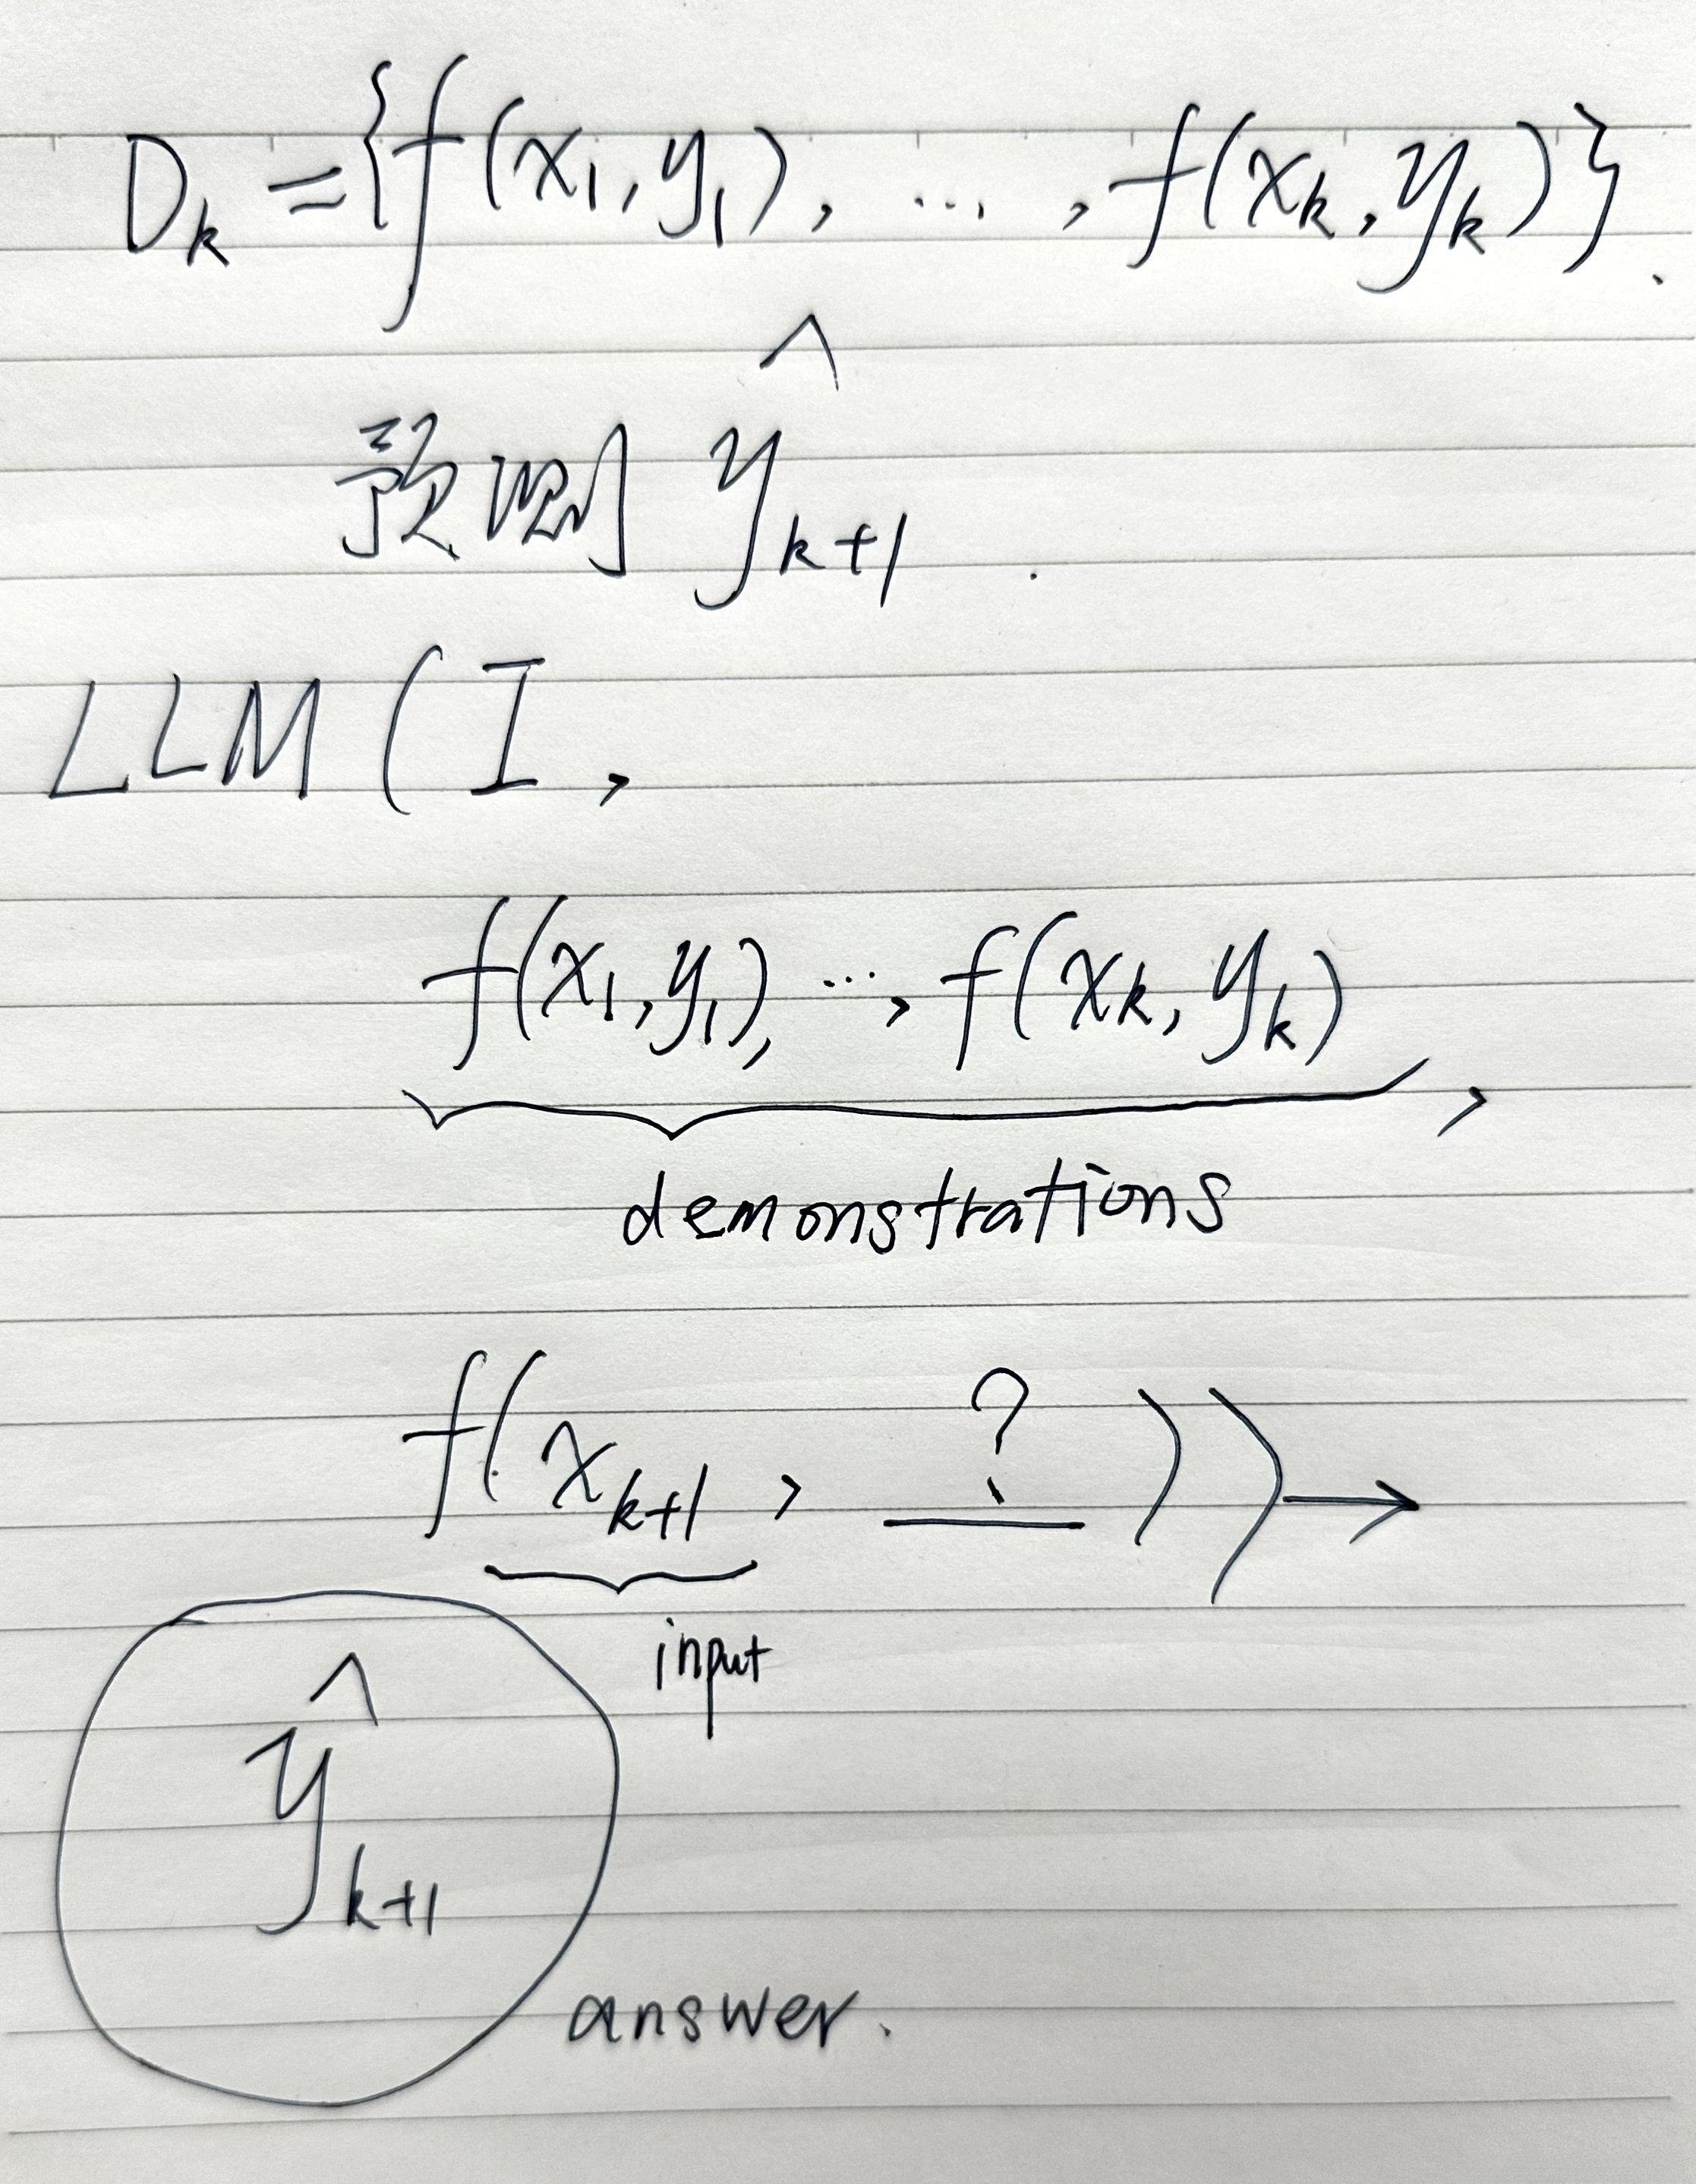 D_k = {f(x_1, y_1), ..., f(x_k, y_k)}.
预测 ŷ_{k+1}.
LLM (I,
f(x_1, y_1), ..., f(x_k, y_k),
demonstrations
f(x_{k+1}, ?)) →
input
ŷ_{k+1}
answer.